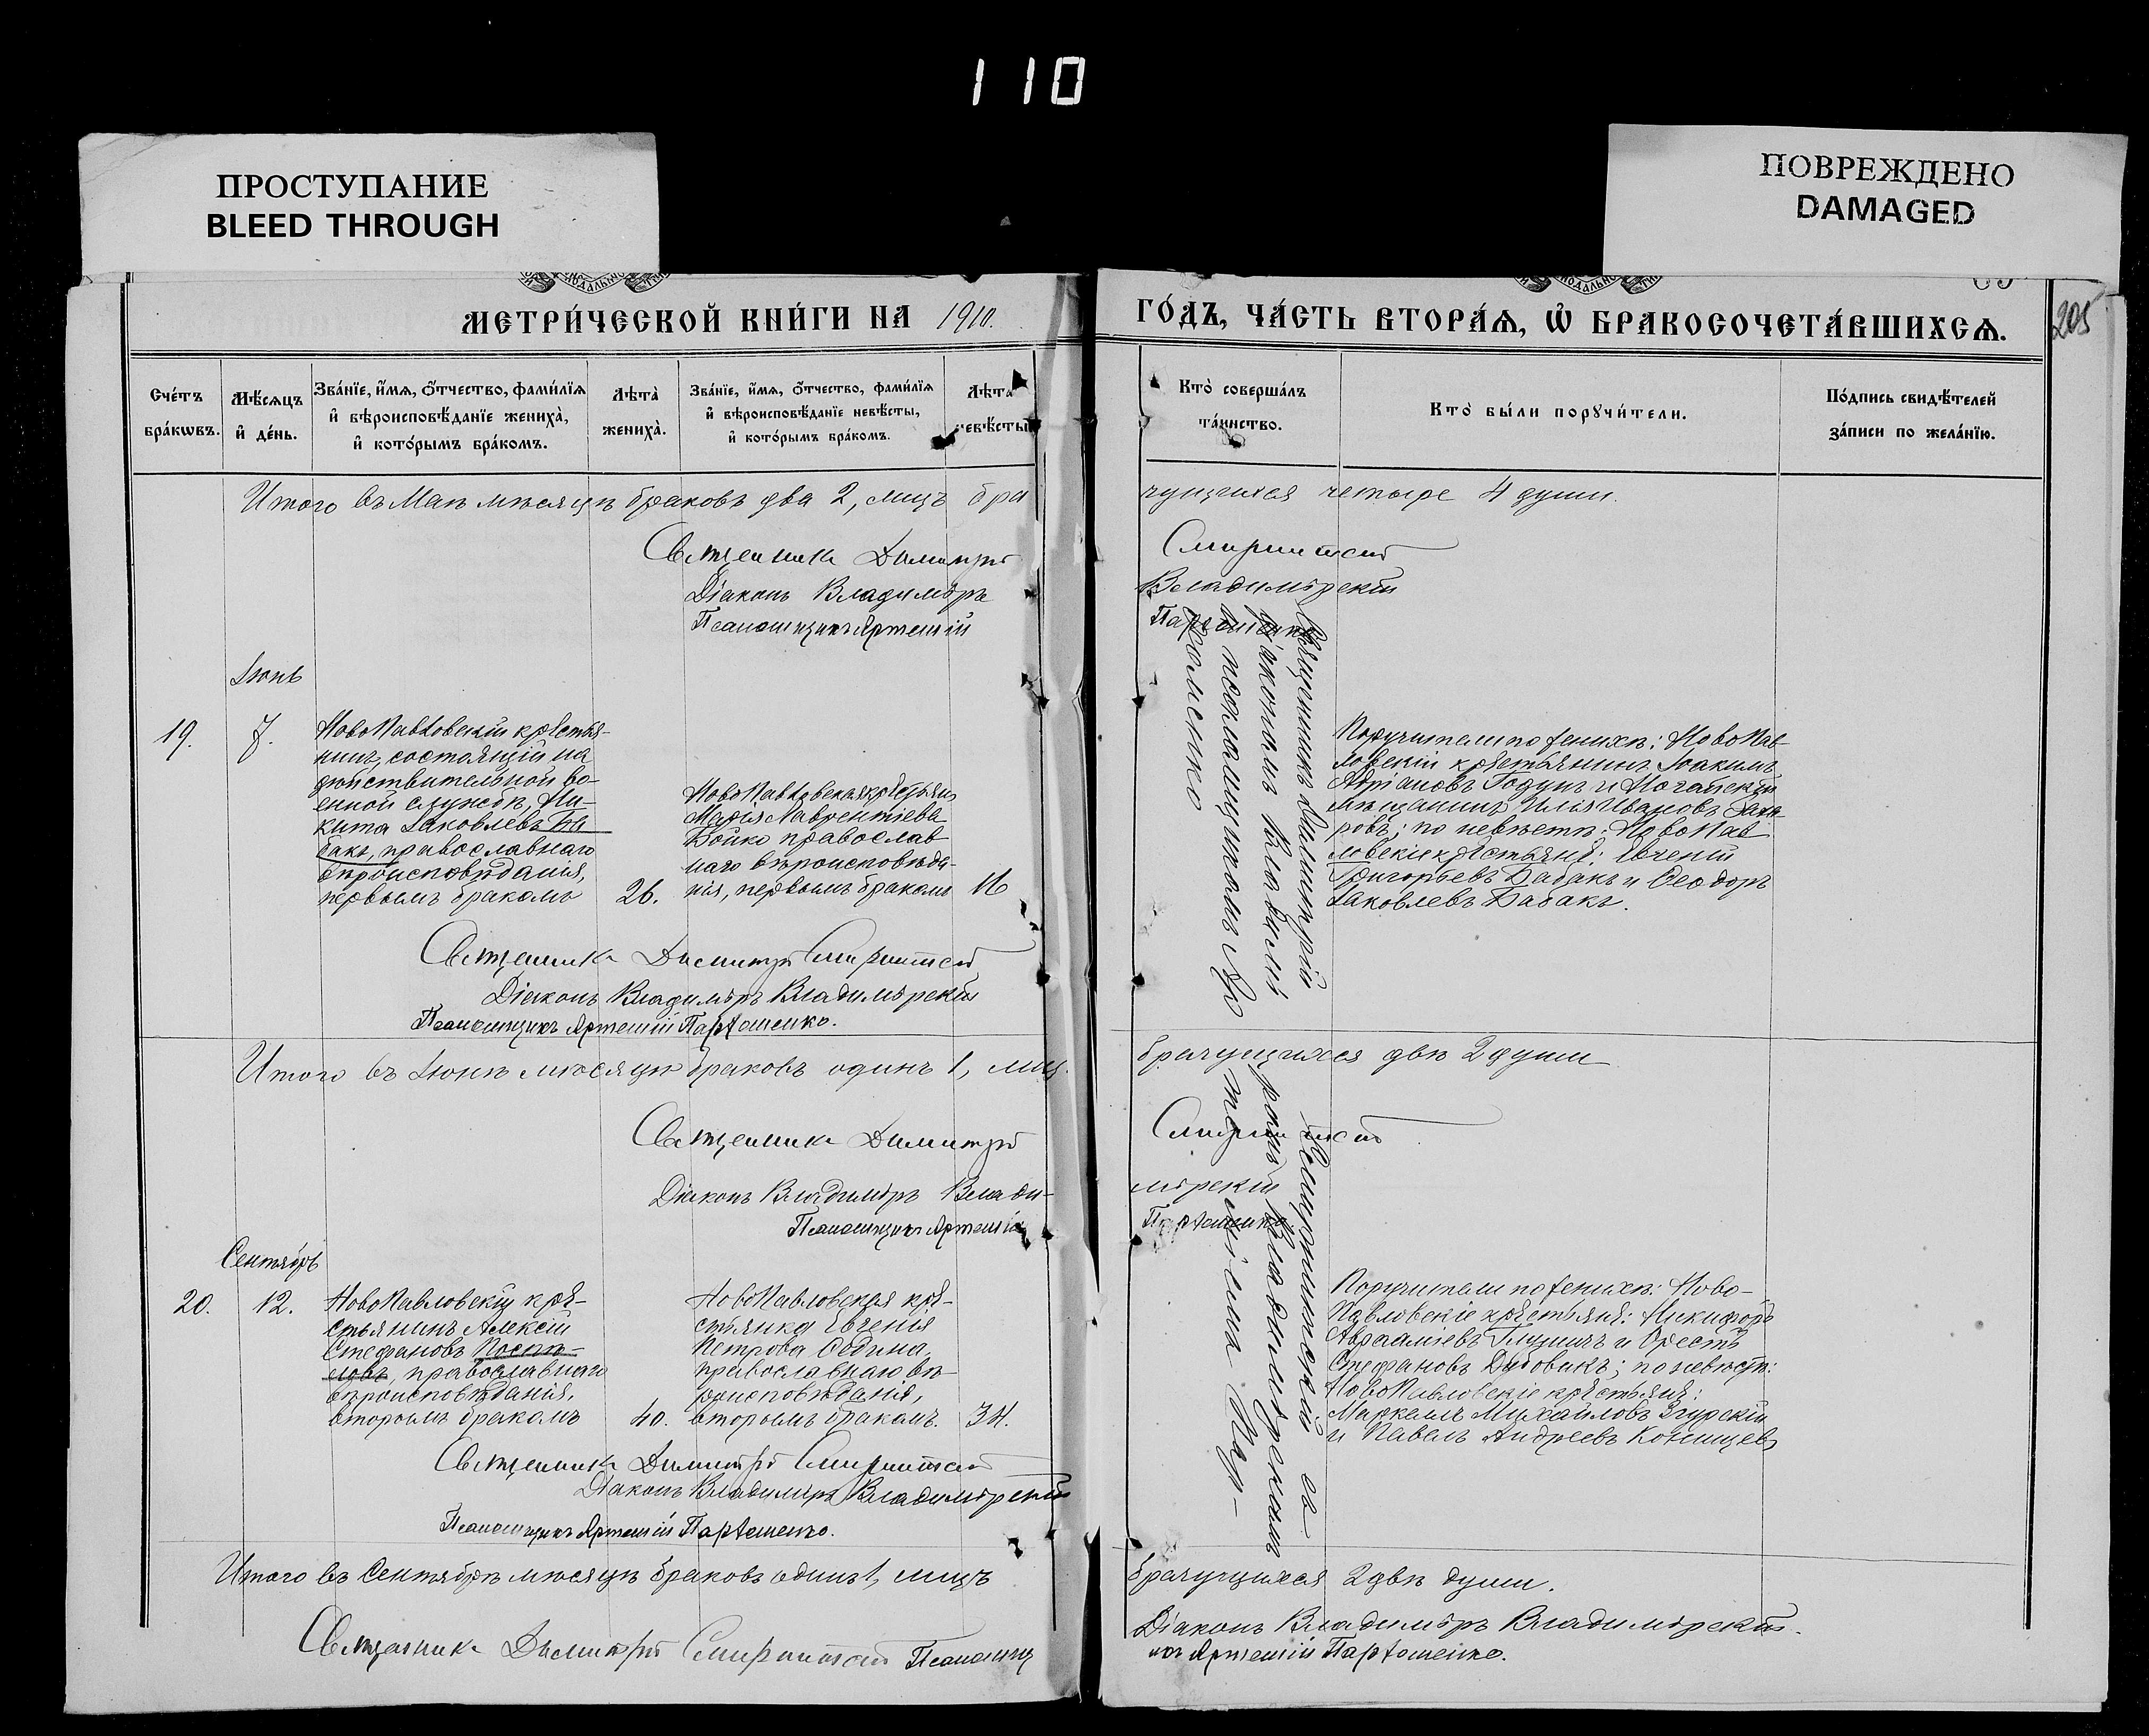 110
ПРОСТУПАНИЕ
BLEED THROUGH
ПОВРЕЖДЕНО
DAMAGED
МЕТРИ́ЧЕСКОЙ КНИ́ГИ НА 1910.
ГО́ДЪ, ЧА́СТЬ ВТОРА́Я, Ѡ БРАКОСОЧЕТА́ВШИХСЯ.
205
Сче́тъ
бра́кѡвъ.
Мѣ́сяцъ
и де́нь.
Зва́нїе, и́мя, ѻ́тчество, фами́лїя
и вѣроисповѣ́данїе жениха̀,
и кото́рымъ бра́комъ.
Лѣта̀
жениха̀.
Зва́нїе, и́мя, ѻ́тчество, фами́лїя
и вѣроисповѣ́данїе невѣ́сты,
и кото́рымъ бра́комъ.
Лѣта
невѣ́сты
Кто̀ соверша́лъ
та́инство.
Кто̀ бы́ли порꙋчи́тели.
По́дпись свидѣ́телей
за́писи по жела́нїю.
Итого въ Маѣ мѣсяцѣ браковъ два 2, лицъ бра
чущихся четыре 4 души.
Священникъ Димитрій
Діаконъ Владиміръ
Псаломщикъ Артемій
Владимірскій
Пархоменко
Іюнь
19.
7.
НовоПавловскій крестья-
нинъ, состоящій на
дѣйствительной во-
енной службѣ, Ни-
кита Іаковлевъ Ба
бакъ, православнаго
вѣроисповѣданія,
первымъ бракомъ
26.
НовоПавловская крестьян
Марія Лаврентіева
Бойко православ
наго вѣроисповѣда-
нія, первымъ бракомъ
16
Священникъ Димитрій
Діакономъ Владимі
и псаломщикомъ Ар
Поручители по женихѣ: НовоПав-
ловскій крестьянинъ Іоакимъ
Адріановъ Годунъ и Ногайскій
мѣщанинъ Илія Ивановъ Заха
ровъ; по невѣстѣ: НовоПав
ловскіе крестьяне: Евгеній
Григорьевъ Бабакъ и Ѳеодоръ
Іаковлевъ Бабакъ.
Священникъ Димитрій
Діаконъ Владиміръ Владимірскій
Псаломщикъ Артемій Пархоменко.
Итого въ Іюнѣ мѣсяцѣ браковъ одинъ 1, лиц
брачущихся двѣ 2 души
Священникъ Димитрій
Діаконъ Владиміръ Влади-
мірскій
Псаломщикъ Артемій
Пархоменко
съ
ромъ Владимірскимъ
теміемъ Пар-
хоменко
Сентябрь
20.
12.
НовоПавловскій кре-
стьянинъ Алексій
Стефановъ Поспѣ-
ловъ, православнаго
вѣроисповѣданія,
вторымъ бракомъ
40.
НовоПавловская кре-
стьянка Евгенія
Петрова
православнаго вѣ-
роисповѣданія,
вторымъ бракомъ.
34.
Поручители по женихѣ: Ново-
Павловскіе крестьяне: Никифоръ
Авраамiевъ и Орестъ
Стефановъ Дубовикъ; по невѣстѣ:
НовоПавловскіе крестьяне:
Маркелъ Михайловъ Згурскій
и Павелъ Андреевъ
Священникъ Димитрій
Діаконъ Владиміръ Владимірскій
Псаломщикъ Артемій Пархоменко.
Итого въ Сентябрѣ мѣсяцѣ браковъ одинъ 1, лицъ
брачущихся 2 двѣ души.
Священникъ Димитрій
Діаконъ Владиміръ Владимірскій.
Псаломщи
къ Артемій Пархоменко.